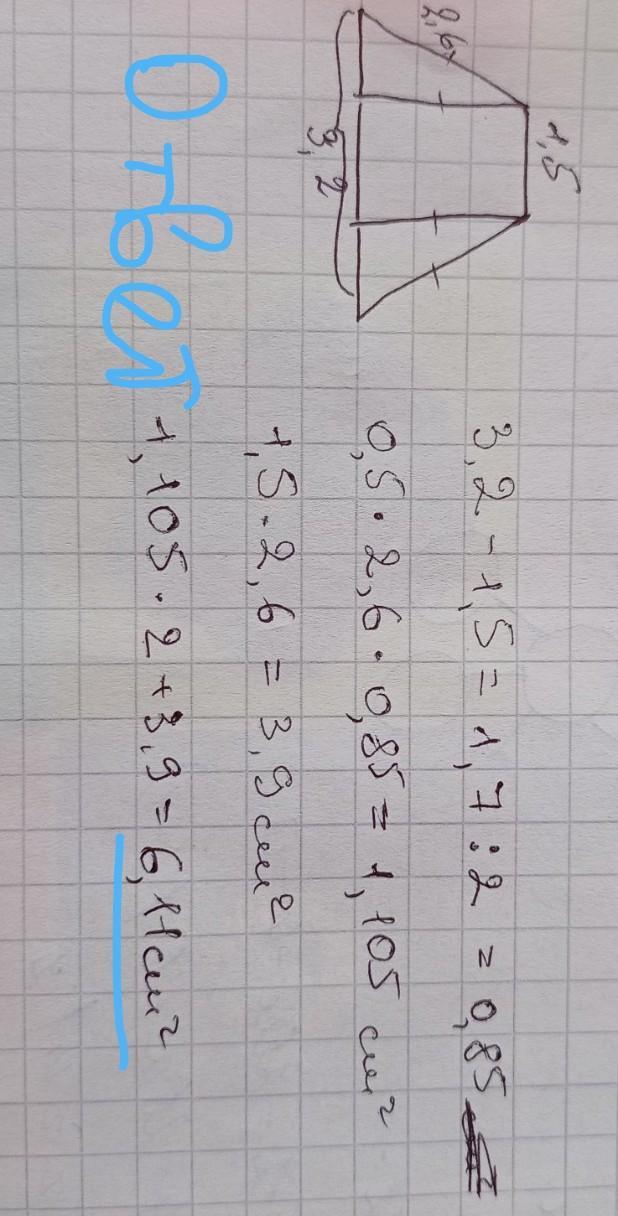 2,6
1,5
3,2
3,2 - 1,5 = 1,7 : 2 = 0,85
0,5 · 2,6 · 0,85 = 1,105 см²
1,5 · 2,6 = 3,9 см²
1,105 · 2 + 3,9 = 6,11 см²
Ответ